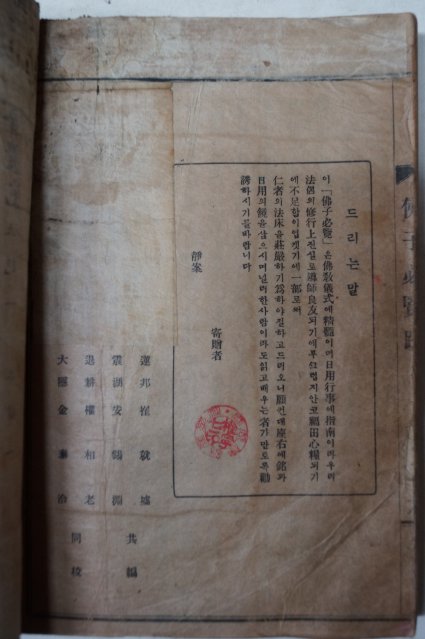 드리는말
이「佛子必覽」은佛敎儀式에精髓이며日用行事에指南이라우리
法侶의修行上진실로導師良友되기에부끄럽지안코福田心糧되기
에不足함이업겟기에一部로써
仁者의法床을莊嚴하기爲하야 하고드리오니願컨대座右에銘과
日用의鏡을삼으시며널리한사람이라도읽고배우는者가만토록勸
誘하시기를바랍니다
靜案
寄贈者
蓮邦 崔就墟 共編
震湖 安錫淵
退耕 權相老 同校
大隱 金泰洽
佛子必覽